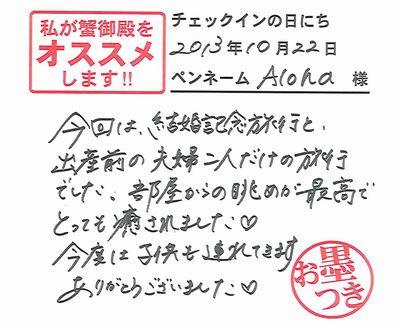 私が蟹御殿を
オススメ
します!!
チェックインの日にち
2013年10月22日
ペンネーム Aloha 様
今回は、結婚記念旅行と、
出産前の夫婦二人だけの旅行
でした。部屋からの眺めが最高で
とっても癒されました♡
今度は子供も連れてきます
ありがとうございました♡
お墨つき